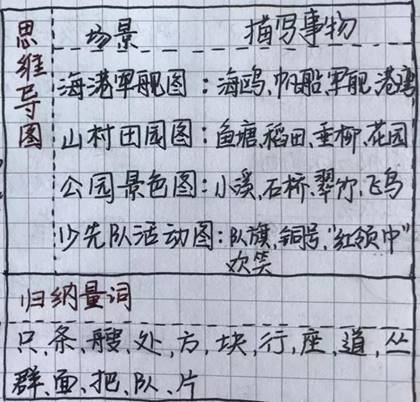 思维导图
场景 描写事物
海港军舰图：海鸥、帆船、军舰、港湾
山村田园图：鱼塘、稻田、垂柳、花园
公园景色图：小溪、石桥、翠竹、飞鸟
少先队活动图：队旗、铜号、“红领巾”
欢笑
归纳量词
只、条、艘、处、方、块、行、座、道、丛
群、面、把、队、片